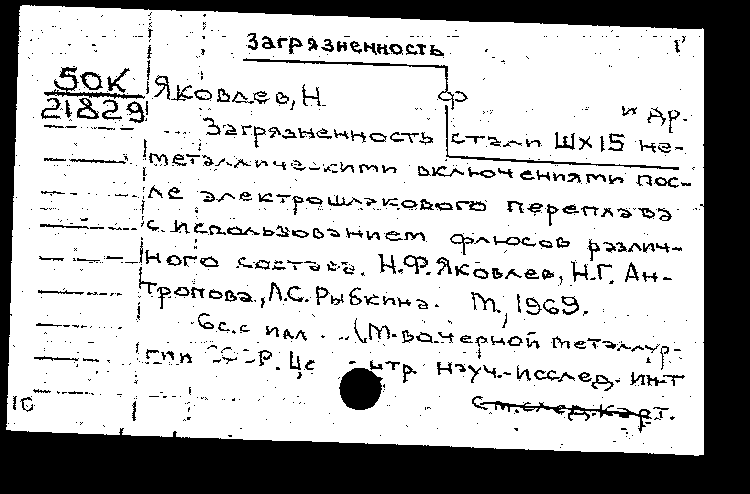 Загрязненность
1
50К
21829
Яковлев, Н. Ф. и др.
Загрязненность стали ШХ15 не-
металлическими включениями пос-
ле электрошлакового переплава
с использованием флюсов различ-
ного состава. Н.Ф.Яковлев, Н.Г. Ан-
тропова, Л.С. Рыбкина. М., 1969.
6с. с илл. (М-во черной металлур-
гии СССР. Це нтр науч.-исслед. ин-т
См. след. карт.
10